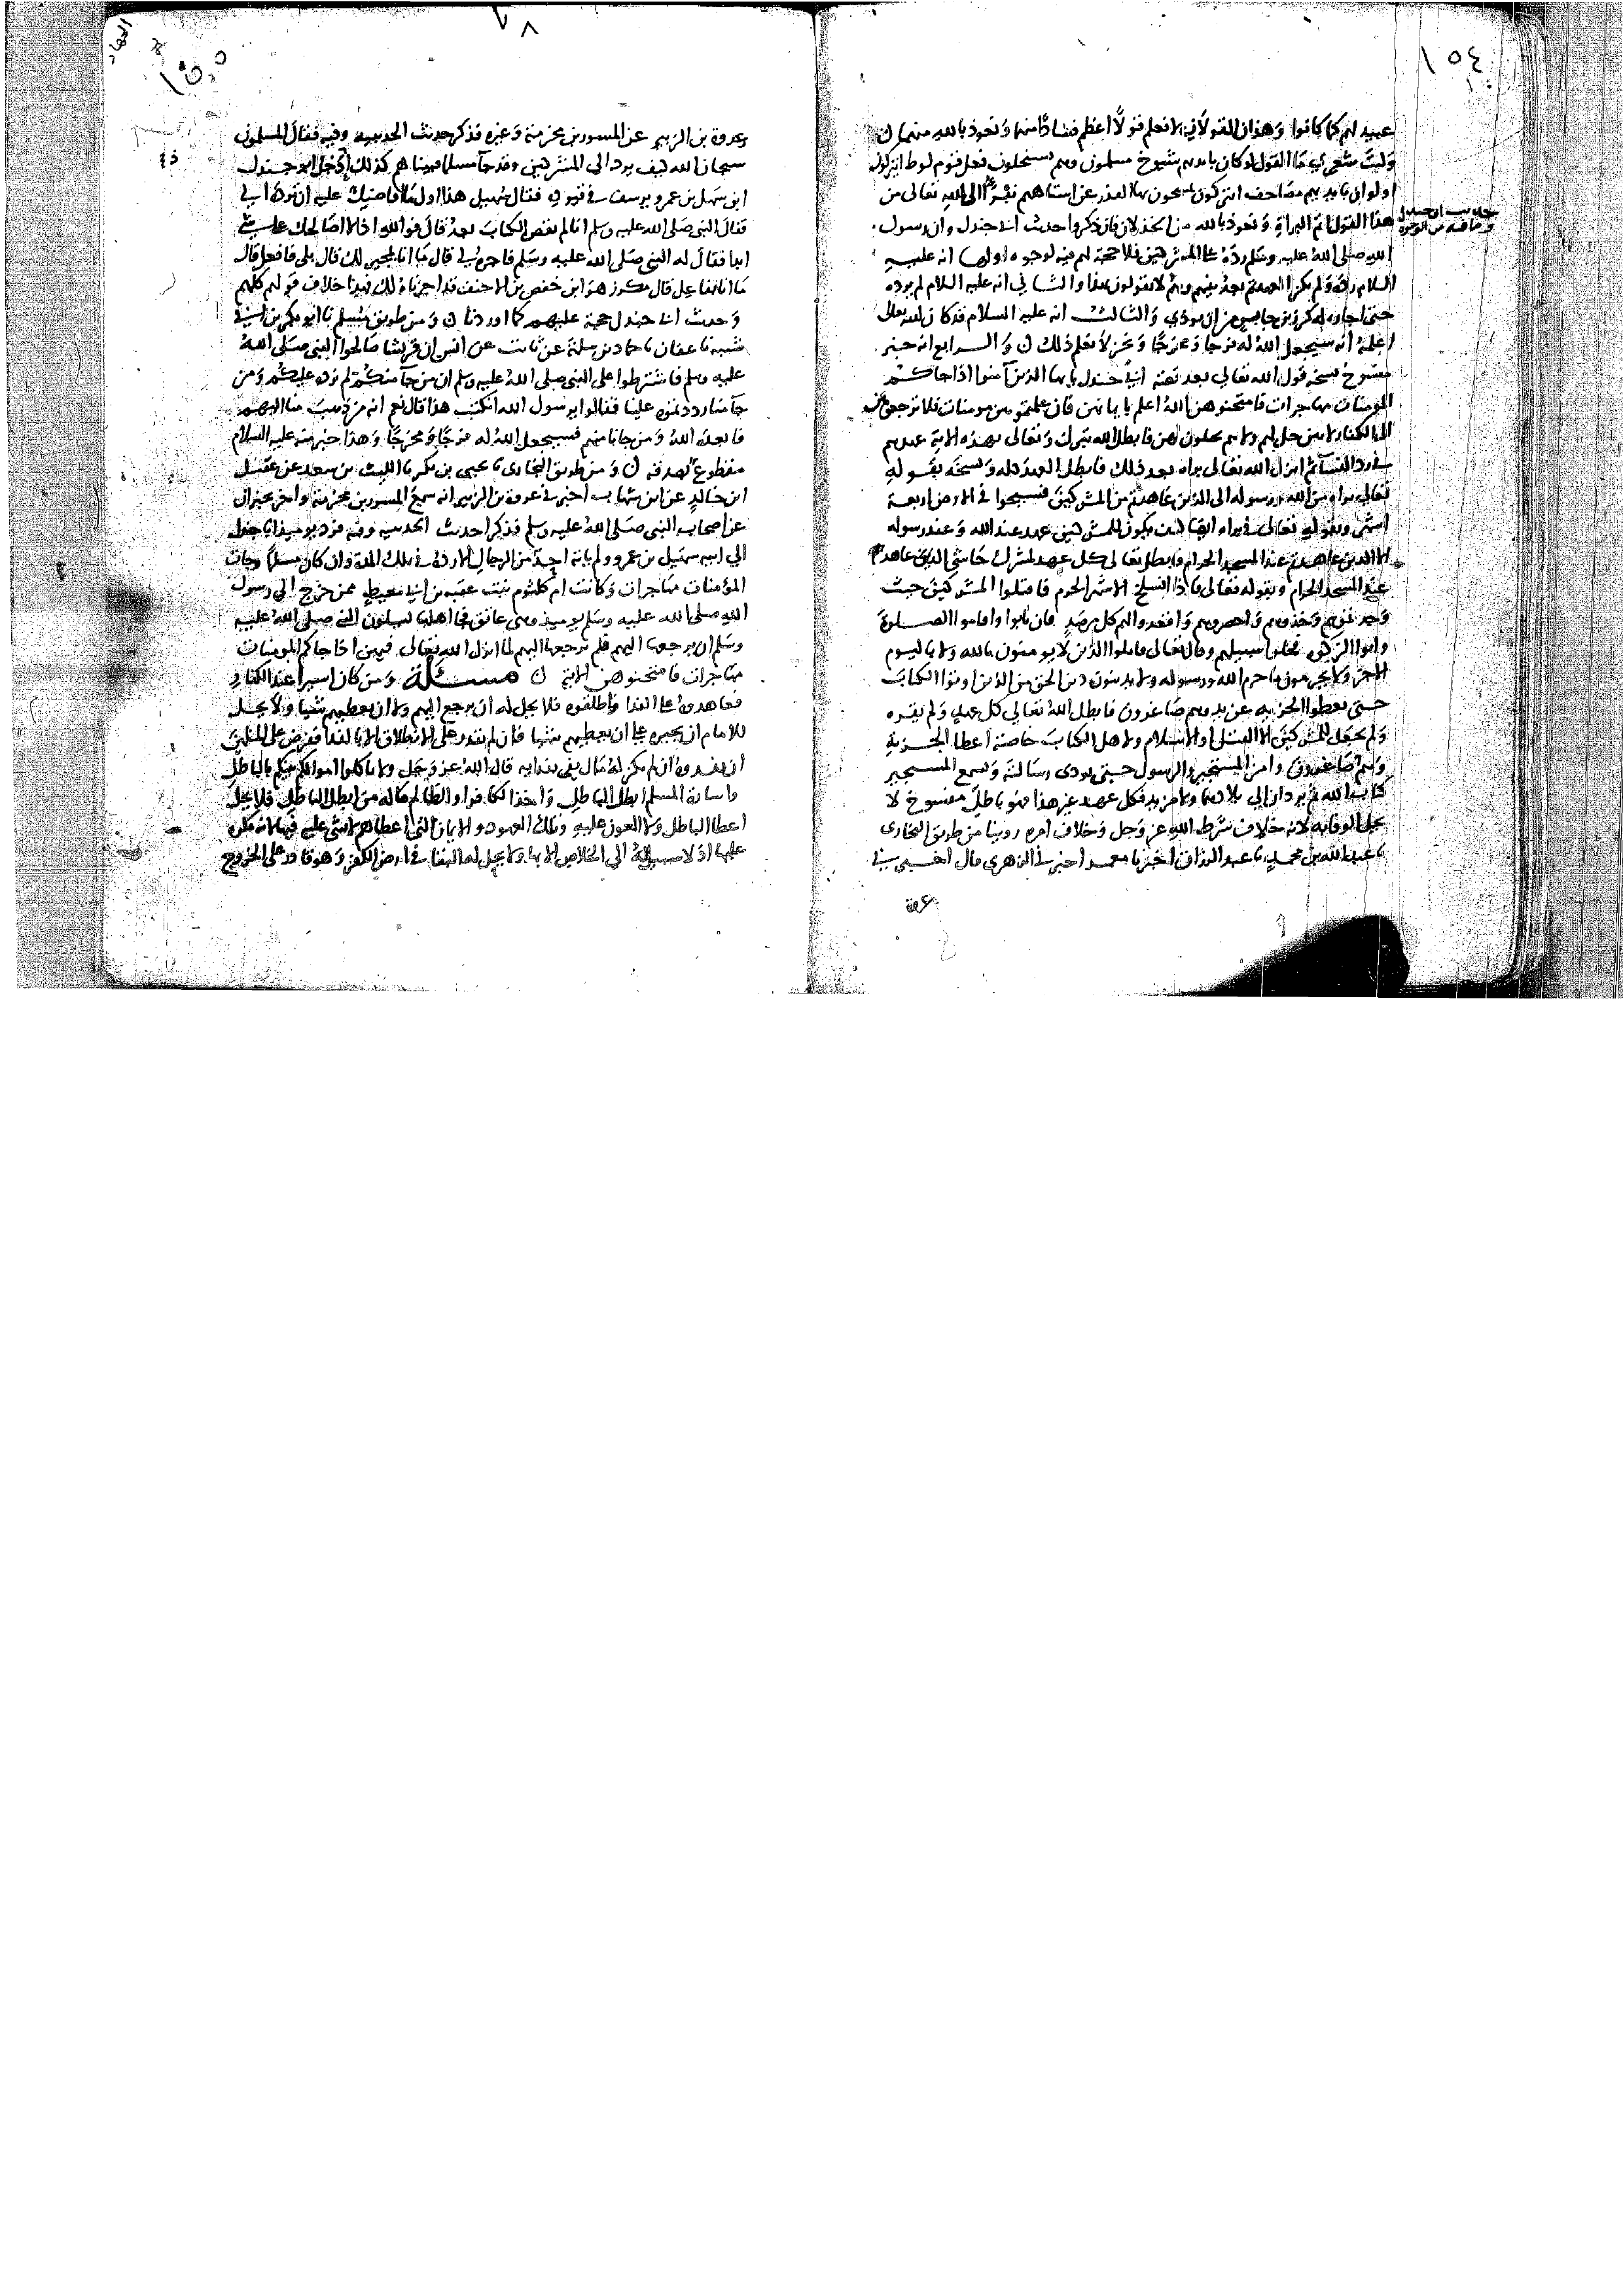 ١٥٤
عبيد لهم كما كانوا وهذان القولان لا نعلم قولا أعظم فسادا منهما ونعوذ بالله منهما ن
وليت شعري ما القول لو كان بايديهم شيوخ مسلمون وهم يستحلون فعل قوم لوط اتركون
او لو ان بايديهم مصاحف اتتركون يمسحون بها العذر عن استاههم نبرأ الى الله تعالى من
هذا القول اتم البراة ونعوذ بالله من الخذلان فان ذكروا حديث ابي جندل وان رسول
الله صلى الله عليه وسلم رده على المشركين فلا حجة لهم فيه لوجوه اولها انه عليه
السلام رده ولم يكن العهد تم بعد بينهم وهم لا يقولون بهذا والثاني انه عليه السلام لم يرده
حتى اجاره له مكرز بن حفص من ان يوذي والثالث انه عليه السلام قد كان الله تعالى
اعلمه انه سيجعل الله له فرجا ومخرجا ونحن لا نعلم ذلك ن والرابع انه خبر
منسوخ نسخه قول الله تعالى بعد قصة ابي جندل يا يها الذين آمنوا اذا جاكم
المومنات مهاجرات فامتحنوهن الله اعلم بايمانهن فان علمتموهن مومنات فلا ترجعوهن
الى الكفار لا هن حل لهم ولا هم يحلون لهن فابطل الله تبرك وتعالى بهذه الاية عهدهم
في رد النسآ ثم انزل الله تعالى براه بعد ذلك فابطل العهد كله ونسخه بقوله
تعالى براه من الله ورسوله الى الذين عاهدتم من المشركين فسيحوا في الارض اربعة
اشهر وبقوله تعالى في براه ايضا كيف يكون للمشركين عهد عند الله وعند رسوله
الا الذين عاهدتم عند المسجد الحرام فابطل تعالى كل عهد لمشرك حاشى الذين عاهدتم
عند المسجد الحرام وبقوله تعالى فاذا انسلخ الاشهر الحرم فاقتلوا المشركين حيث
وجدتموهم وخذوهم واحصروهم واقعدوا لهم كل مرصد فان تابوا واقاموا الصلوة
واتوا الزكوة فخلوا سبيلهم وقال تعالى قاتلوا الذين لا يومنون بالله ولا باليوم
الاخر ولا يحرمون ما حرم الله ورسوله ولا يدينون دين الحق من الذين اوتوا الكتاب
حتى يعطوا الجزية عن يد وهم صاغرون فابطل الله تعالى كل عهد ولم يقره
ولم يجعل للمشركين الا القتل او الاسلام ولاهل الكتاب خاصة اعطا الجزية
وهم صاغرون وامن المستجير والرسول حتى يودى رسالته ويسمع المستجير
كتاب الله ثم يردان الى بلادهما ولا مزيد فكل عهد غير هذا فهو باطل مفسوخ لا
يحل الوفا به لانه خلاف شرط الله عز وجل وخلاف امره روينا من طريق البخارى
نا عبد الله بن محمد نا عبد الرزاق اخبرنا معمر اخبرني الزهرى قال اخبرني
عروة
حديث ابي جندل
٧٨
١٥٥
الجهاد
عروة بن الزبير عن المسور بن مخرمة وغيره فذكر حديث الحديبيه وفيه فقال المسلمون
سبحان الله كيف يرد الى المشركين وقد جآ مسلما فبينا هم كذلك اذ دخل ابو جندل
ابن سهيل بن عمرو يرسف في قيوده فقال سهيل هذا اول ما اقاضيك عليه ان ترده الي
فقال النبي صلى الله عليه وسلم انا لم نقض الكتاب بعد قال فوالله اذا لا اصالحك على شي
ابدا فقال له النبي صلى الله عليه وسلم فاجره لي قال ما انا بمجيره لك قال بلى فافعل قال
ما انا بفاعل قال مكرز هو ابن حفص بن الاحنف قد اجزناه لك فهذا خلاف قولهم كلهم
وحديث ابي جندل حجة عليهم كما اوردنا ن ومن طريق مسلم نا ابو بكر بن ابي
شيبه نا عفان نا حماد بن سلمة عن ثابت عن انس ان قريشا صالحوا النبي صلى الله
عليه وسلم فاشترطوا على النبي صلى الله عليه وسلم ان من جآ منكم لم نرده عليكم ومن
جآ منا رددتموه علينا فقالوا يرسول الله انكتب هذا قال نعم انه من ذهب منا اليهم
فابعده الله ومن جانا منهم فسيجعل الله له فرجا ومخرجا وهذا خبر منه عليه السلام
مقطوع بصدقه ن ومن طريق البخارى نا يحيى بن بكير نا الليث بن سعد عن عقيل
ابن خالد عن ابن شهاب اخبرني عروة بن الزبير انه سمع المسور بن مخرمة ومروان يخبران
عن اصحاب النبي صلى الله عليه وسلم فذكر احديث الحديبيه وفيه فرد يوميذ ابا جندل
الى ابيه سهيل بن عمرو ولم ياته احد من الرجال الا رده في تلك المدة وان كان مسلما وجات
المؤمنات مهاجرات وكانت ام كلثوم بنت عقبه بن ابي معيط ممن خرج الى رسول
الله صلى الله عليه وسلم يوميذ وهى عاتق فجا اهلها يسلون النبي صلى الله عليه
وسلم ان يرجعها اليهم فلم يرجعها اليهم لما انزل الله تعالى فيهن اذا جاكم المومنات
مهاجرات فامتحنوهن الاية ن مسئلة ومن كان اسيرا عند الكفار
فعاهدوه على الفدا واطلقوه فلا يحل له ان يرجع اليهم ولا ان يعطيهم شيا ولا يحل
للامام ان يجبره على ان يعطيهم شيا فان لم يقدر على الانطلاق الا بالفدا ففرض على المسلمين
ان يفدوه ان لم يكن له مال يفي بفدايه قال الله عز وجل ولا تاكلوا اموالكم بينكم بالباطل
واسار المسلم ابطل الباطل واخذ الكافر او الظالم ماله من ابطل الباطل فلا يحل
اعطا الباطل ولا العون عليه وتلك العهود والايمان التي اعطاهم لا شي عليه فيها لانه مكره
عليها اذ لا سبيل له الى الخلاص الا بها ولا يحل له البقا في ارض الكفر وهو قادر على الخروج